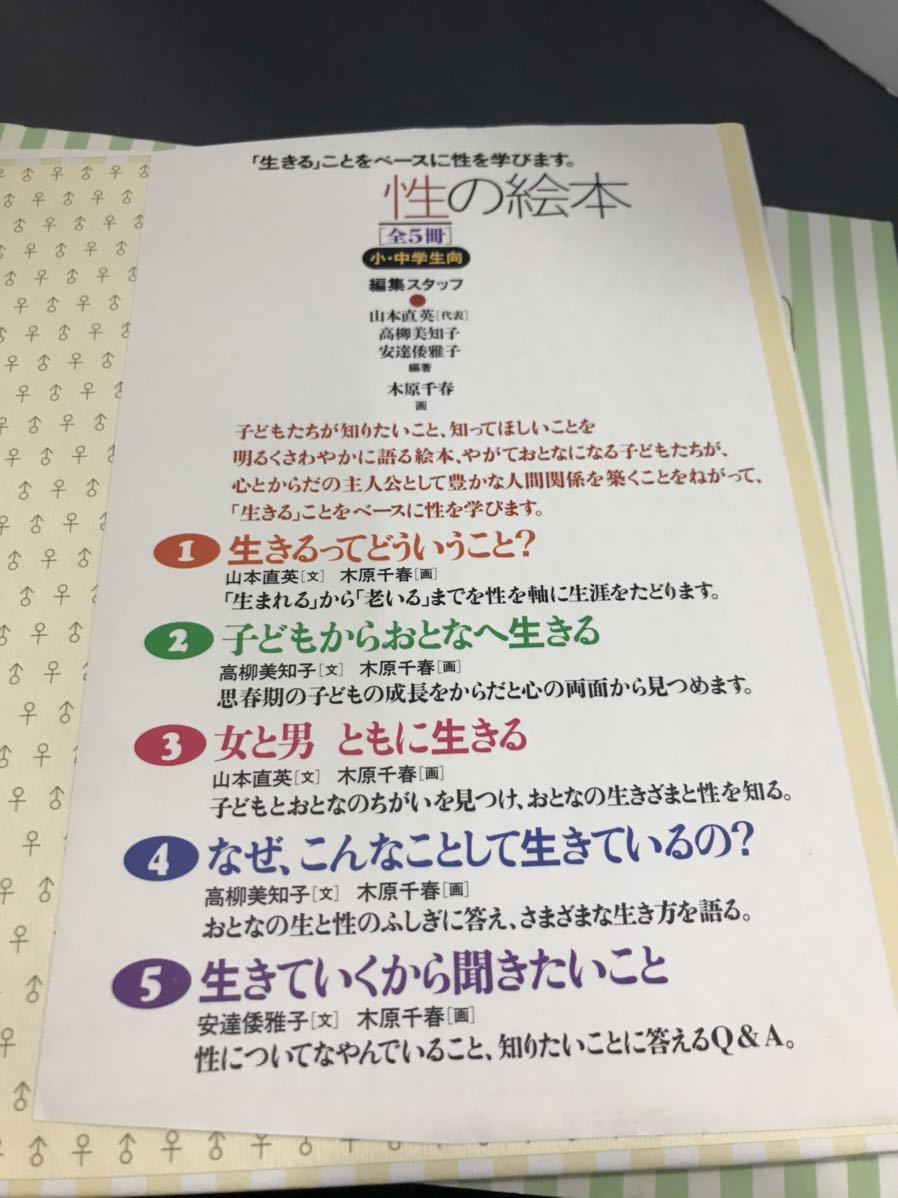 「生きる」ことをベースに性を学びます。
性の絵本
[全5冊]
小・中学生向
編集スタッフ
山本直英[代表]
高柳美知子
安達倭雅子
編著
木原千春
画
子どもたちが知りたいこと、知ってほしいことを
明るくさわやかに語る絵本、やがておとなになる子どもたちが、
心とからだの主人公として豊かな人間関係を築くことをねがって、
「生きる」ことをベースに性を学びます。
1 生きるってどういうこと?
山本直英[文] 木原千春[画]
「生まれる」から「老いる」までを性を軸に生涯をたどります。
2 子どもからおとなへ生きる
高柳美知子[文] 木原千春[画]
思春期の子どもの成長をからだと心の両面から見つめます。
3 女と男 ともに生きる
山本直英[文] 木原千春[画]
子どもとおとなのちがいを見つけ、おとなの生きざまと性を知る。
4 なぜ、こんなことして生きているの?
高柳美知子[文] 木原千春[画]
おとなの生と性のふしぎに答え、さまざまな生き方を語る。
5 生きていくから聞きたいこと
安達倭雅子[文] 木原千春[画]
性についてなやんでいること、知りたいことに答えるQ&A。